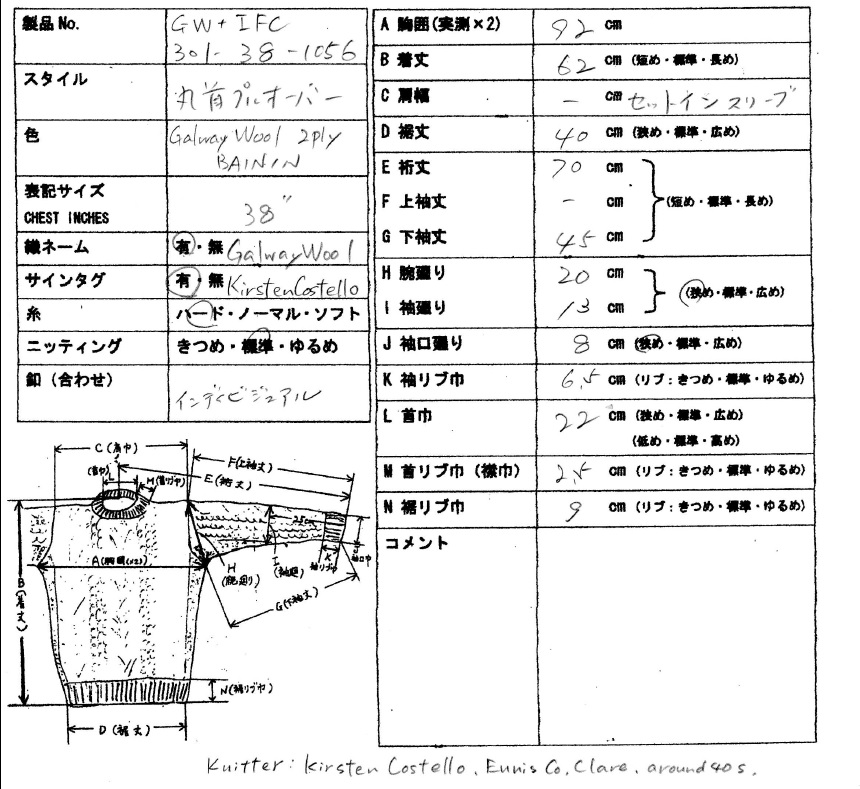 製品No. GW+IFC
301-38-1056
スタイル 丸首プルオーバー
色 Galway Wool 2ply
BAININ
表記サイズ
CHEST INCHES 38"
織ネーム 有・無 GalwayWool
サインタグ 有・無 KirstenCostello
糸 ハード・ノーマル・ソフト
ニッティング きつめ・標準・ゆるめ
釦（合わせ） インディビジュアル
A 胸囲(実測×2) 92 cm
B 着丈 62 cm (短め・標準・長め)
C 肩幅 - cm セットインスリーブ
D 裾丈 40 cm (狭め・標準・広め)
E 裄丈 70 cm
F 上袖丈 - cm (短め・標準・長め)
G 下袖丈 45 cm
H 腕廻り 20 cm
(狭め・標準・広め)
I 袖廻り 13 cm
J 袖口廻り 8 cm (狭め・標準・広め)
K 袖リブ巾 6.5 cm (リブ：きつめ・標準・ゆるめ)
L 首巾 22 cm (狭め・標準・広め)
(低め・標準・高め)
M 首リブ巾（襟巾） 2.5 cm (リブ：きつめ・標準・ゆるめ)
N 裾リブ巾 9 cm (リブ：きつめ・標準・ゆるめ)
コメント
C(肩巾)
F(上袖丈)
E(裄丈)
(首巾)
M(首リブ巾)
A(胸囲(×2)
B(着丈)
H
(腕廻り)
I
(袖廻)
K
袖リブ巾
袖口巾
G(下袖丈)
N(裾リブ巾)
D(裾丈)
Knitter: Kirsten Costello, Ennis Co, Clare, around 40s.